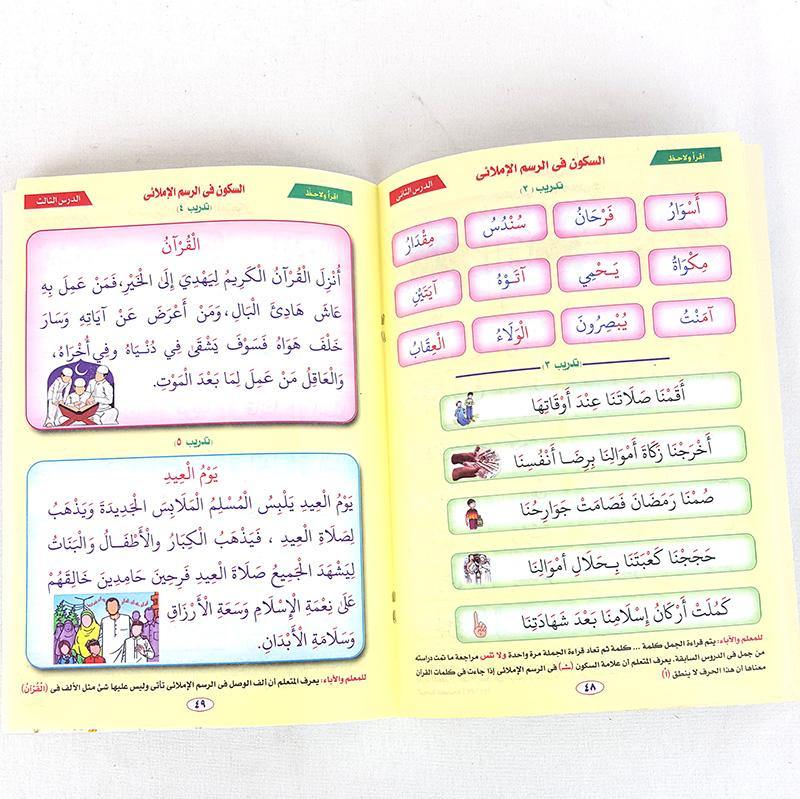 اقرأ ولاحظ
السكون فى الرسم الإملائى
الدرس الثانى
تدريب (٢)
أَسْوَار فَرْحَانُ سُنْدُسُ مِقْدَارُ
مِكْوَاةُ يَـحْمِي آتَـوْهُ آيَتَيْنِ
آمَنْتُ يُبْصِرُونَ الْوَلَاءُ الْعِقَابُ
(تدريب ٣)
أَقَمْنَا صَلَاتَنَا عِنْدَ أَوْقَاتِهَا
أَخْرَجْنَا زَكَاةَ أَمْوَالِنَا بِرِضَـا أَنْفُسِنَا
صُمْنَا رَمَضَانَ فَصَامَتْ جَوَارِحُنَا
حَجَجْنَا كَعْبَتَنَا بِـحَلَالِ أَمْوَالِنَا
كَمُلَتْ أَرْكَانُ إِسْلَامِنَا بَعْدَ شَهَادَتِنَا
للمعلم والآباء: يتم قراءة الجمل كلمة ... كلمة ثم تعاد قراءة الجملة مرة واحدة ولا تنس مراجعة ما تمت دراسته
من جمل فى الدروس السابقة. يعرف المتعلم أن علامة السكون (ـْـ) فى الرسم الإملائى إذا جاءت فى كلمات القرآن
معناها أن هذا الحرف لا ينطق (أْ)
٤٨
اقرأ ولاحظ
السكون فى الرسم الإملائى
الدرس الثالث
(تدريب ٤)
الْقُرْآنُ
أُنْزِلَ الْقُرْآنُ الْكَرِيمُ لِيَهْدِيَ إِلَى الْخَيْرِ،فَمَنْ عَمِلَ بِهِ
عَاشَ هَادِئَ الْبَالِ،وَمَنْ أَعْرَضَ عَنْ آيَاتِهِ وَسَارَ
خَلْفَ هَوَاهُ فَسَوْفَ يَشْقَى فِي دُنْيَاهُ وفِي أُخْرَاهُ،
وَالْعَاقِلُ مَنْ عَمِلَ لِمَا بَعْدَ الْمَوْتِ.
(تدريب ٥)
يَوْمُ الْعِيدِ
يَوْمُ الْعِيدِ يَلْبِسُ الْمُسْلِمُ الْمَلَابِسَ الْجَدِيدَةَ وَيَذْهَبُ
لِصَلَاةِ الْعِيدِ ، فَيَذْهَبُ الْكِبَارُ والْأَطْفَـالُ وَالْبَنَاتُ
لِيَشْهَدَ الْجَمِيعُ صَلَاةَ الْعِيدِ فَرِحِينَ حَامِدِينَ خَالِقَهُمْ
عَلَى نِعْمَةِ الْإِسْلَامِ وَسَعَةِ الْأَرْزَاقِ
وَسَلَامَةِ الْأَبْدَانِ.
للمعلم والآباء: يعرف المتعلم أن ألف الوصل فى الرسم الإملائى تأتى وليس عليها شئ مثل الألف فى (الْقُرْآنُ)
٤٩